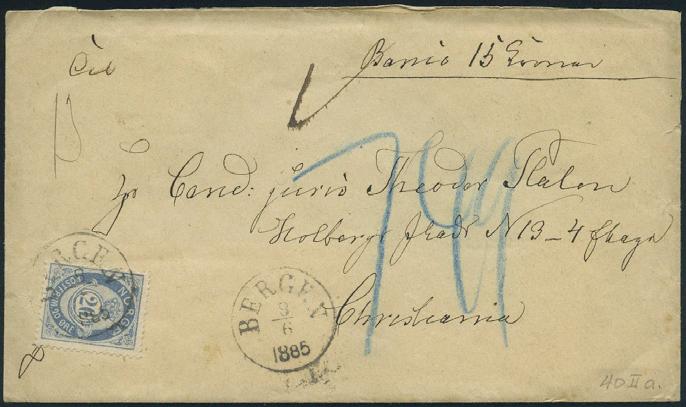 Til
Banco 15 Kroner
Hr Cand: juris Theodor Platou
Holbergs N 13 – 4 Etage
Christiania
BERGEN
20
NORGE
20 ØRE
BERGEN
3
6
1885
40 II a.